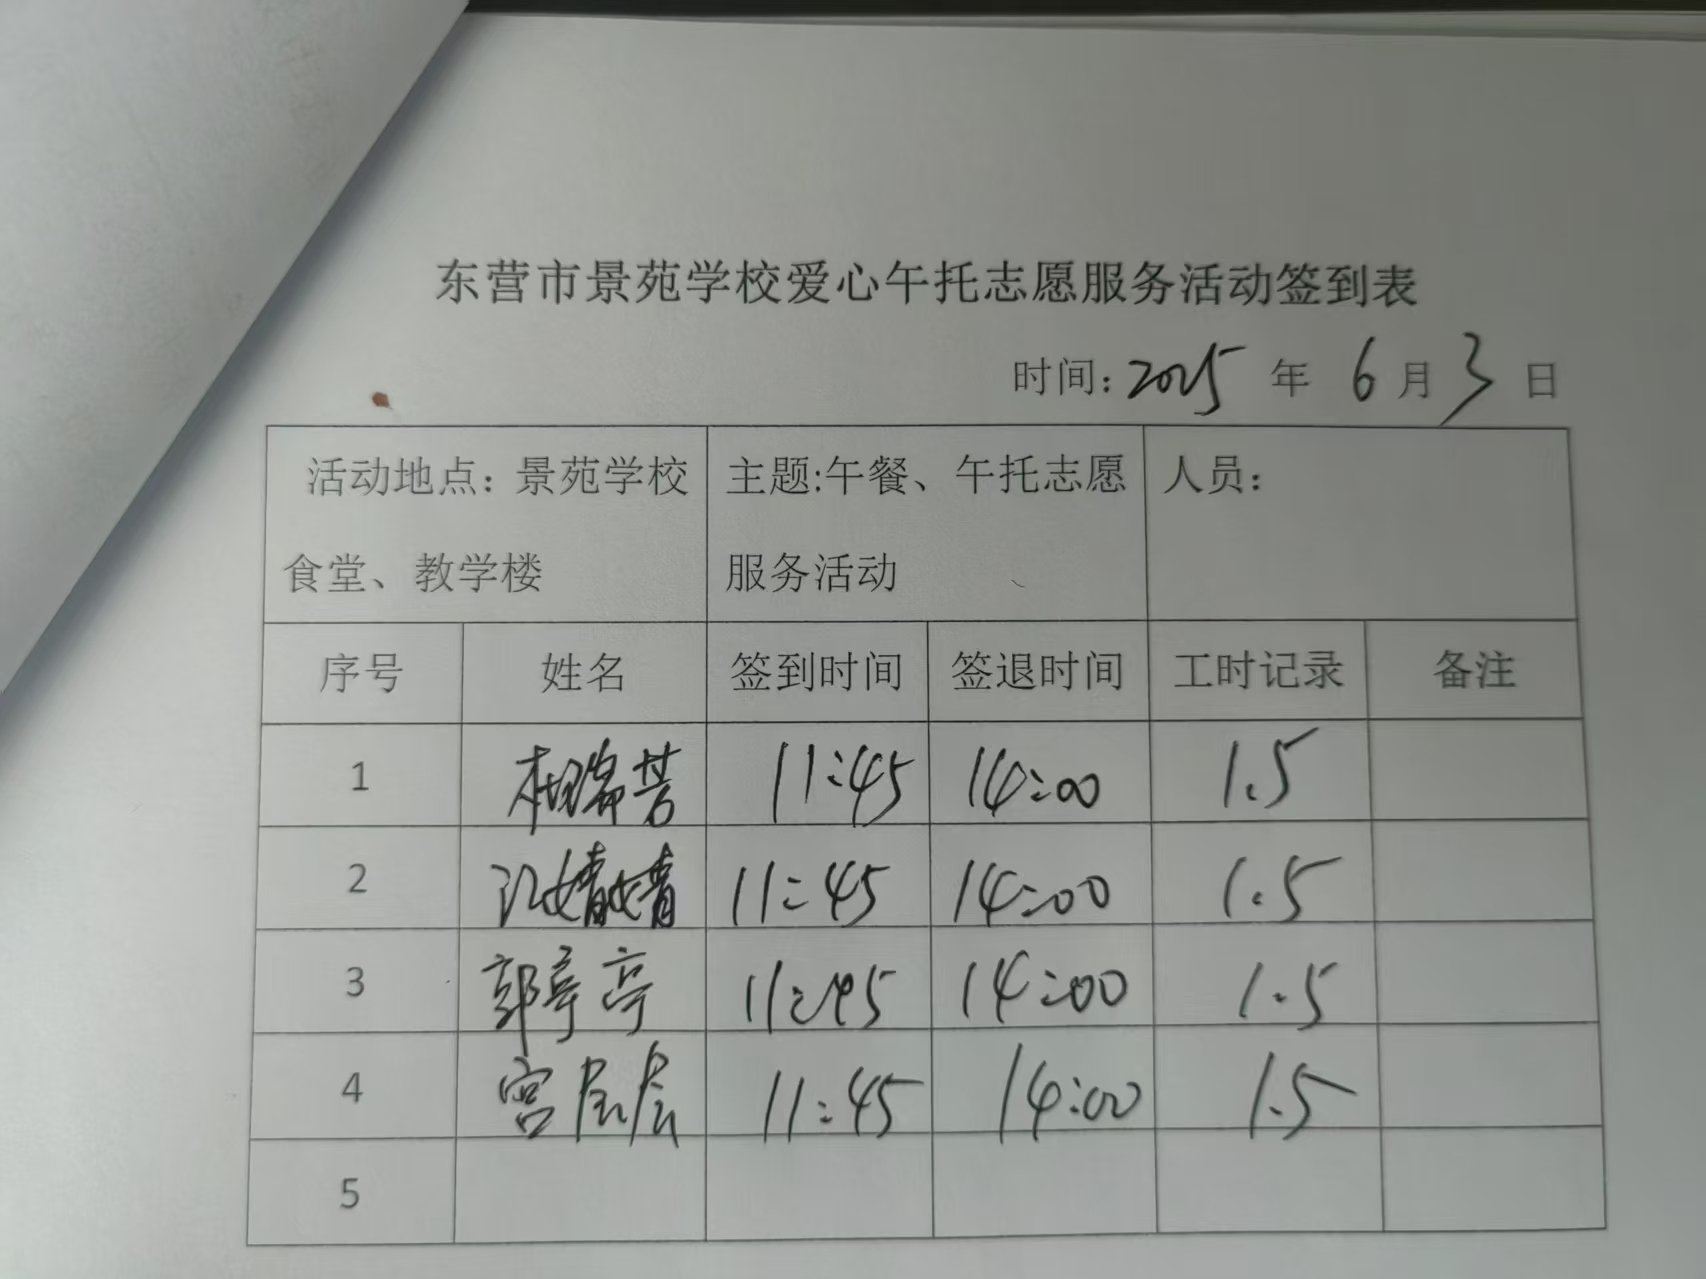 东营市景苑学校爱心午托志愿服务活动签到表
时间：2025 年 6 月 3 日
活动地点：景苑学校食堂、教学楼 主题:午餐、午托志愿服务活动 人员：
序号 姓名 签到时间 签退时间 工时记录 备注
1 瑞芳 11:45 14:00 1.5
2 婧婧 11:45 14:00 1.5
3 郭亭亭 11:45 14:00 1.5
4 宫 11:45 14:00 1.5
5